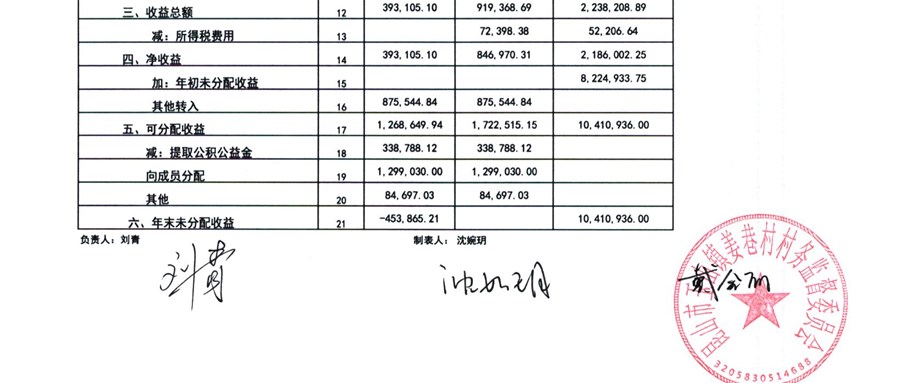 三、收益总额 12 393,105.10 919,368.69 2,238,208.89
减：所得税费用 13 72,398.38 52,206.64
四、净收益 14 393,105.10 846,970.31 2,186,002.25
加：年初未分配收益 15 8,224,933.75
其他转入 16 875,544.84 875,544.84
五、可分配收益 17 1,268,649.94 1,722,515.15 10,410,936.00
减：提取公积公益金 18 338,788.12 338,788.12
向成员分配 19 1,299,030.00 1,299,030.00
其他 20 84,697.03 84,697.03
六、年末未分配收益 21 -453,865.21 10,410,936.00
负责人：刘青 制表人： 沈婉玥
刘青 沈婉玥
昆山市 镇姜巷村村务监督委员会
3205830514688